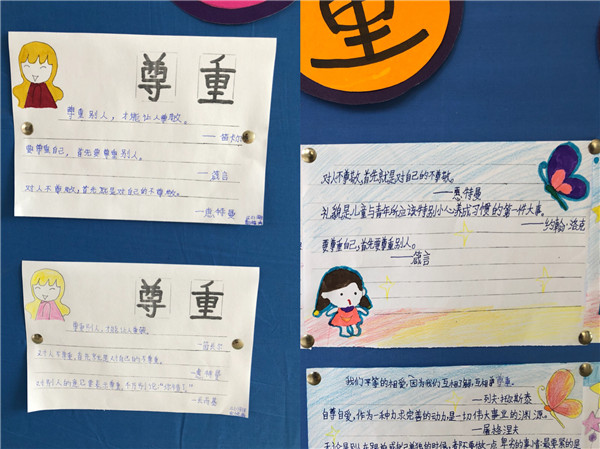 尊 重
尊重别人，才能让人尊敬。
——笛卡尔
要尊重自己，首先要尊重别人。
——谚言
对人不尊敬，首先就是对自己的不尊敬。
——惠特曼
尊 重
尊重别人，才能让人尊敬。
——笛卡尔
对人不尊敬，首先就是对自己的不尊敬。
——惠特曼
重
对人不尊敬，首先就是对自己的不尊敬。
——惠特曼
礼貌是儿童与青年所应该特别小心养成习惯的第一件大事。
——约翰·洛克
要尊重自己，首先要尊重别人。
——谚言
我们平等的相爱，因为我们互相了解，互相尊重。
——列夫·托尔斯泰
自尊自爱，作为一种力求完善的动力，是一切伟大事业的渊源。
——屠格涅夫